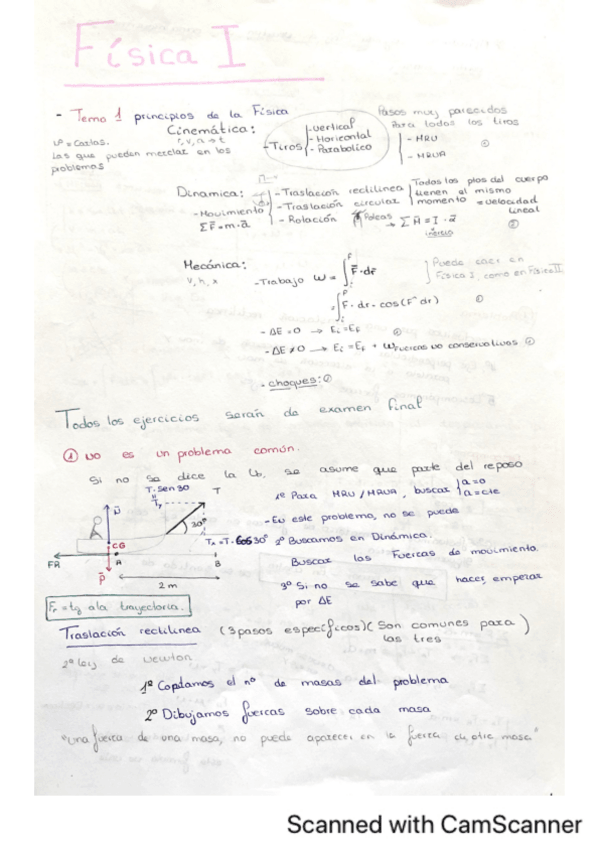 Física I
- Tema 1 principios de la Física
Cinemática:
r, v, a → t
Vº = Cartas.
Las que pueden mezclar en los
problemas
- Tiros
- vertical
- Horizontal
- Parabolico
Pasos muy parecidos
Para todos los tiros
- MRU
- MRUA
Dinamica:
- Movimiento
ΣF = m·a
- Traslación rectilinea
- Traslación circular
- Rotación
Poleas → ΣM = I · α
inercia
Todos los ptos del cuerpo
tienen el mismo
momento = velocidad
lineal
②
Mecánica:
v, h, x
- Trabajo W = ∫ F·dr
= ∫ F · dr · cos(F^dr)
Puede caer en
Física I, como en Física II
- ΔE = 0 → Ei = EF
- ΔE ≠ 0 → Ei = EF + WFuerzas no conservativas
- choques:
Todos los ejercicios serán de examen final
① No es un problema común.
Si no se dice la Vo, se asume que parte del reposo
T·sen30
Ty
T
30º
Tx = T·cos30º
N
CG
FR
A
B
P
2m
1º Para MRU/MRUA, buscar
a = 0
a = cte
- En este problema, no se puede
2º Buscamos en Dinámica.
Buscar las Fuerzas de movimiento.
3º Si no se sabe que hacer, empezar
por ΔE
Fr = tg a la trayectoria.
Traslación rectilinea (3 pasos específicos)(Son comunes para
las tres)
2º ley de Newton
1º Copitamos el nº de masas del problema
2º Dibujamos fuerzas sobre cada masa
"Una fuerza de una masa, no puede aparecer en la fuerza de otra masa"
Scanned with CamScanner